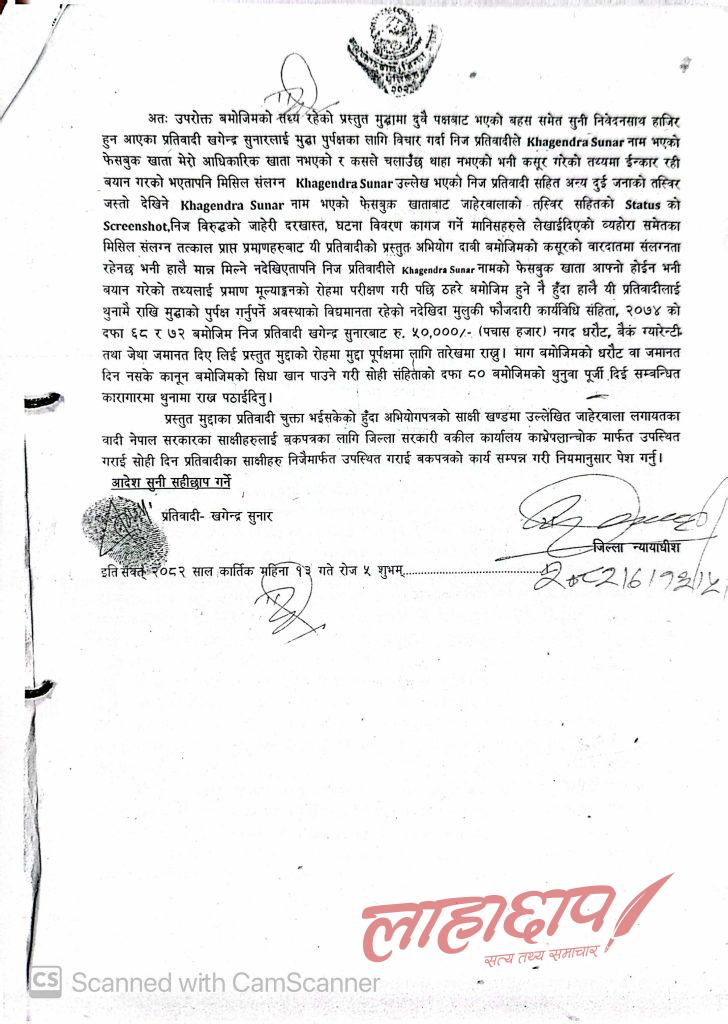 अतः उपरोक्त बमोजिमको तथ्य रहेको प्रस्तुत मुद्धामा दुवै पक्षबाट भएको बहस समेत सुनी निवेदनसाथ हाजिर
हुन आएका प्रतिवादी खगेन्द्र सुनारलाई मुद्धा पुर्पक्षका लागि विचार गर्दा निज प्रतिवादीले Khagendra Sunar नाम भएको
फेसबुक खाता मेरो आधिकारिक खाता नभएको र कसले चलाउँछ थाहा नभएको भनी कसूर गरेको तथ्यमा ईन्कार रही
बयान गरको भएतापनि मिसिल संलग्न Khagendra Sunar उल्लेख भएको निज प्रतिवादी सहित अन्य दुई जनाको तस्विर
जस्तो देखिने Khagendra Sunar नाम भएको फेसबुक खाताबाट जाहेरवालाको तस्विर सहितको Status को
Screenshot,निज विरुद्धको जाहेरी दरखास्त, घटना विवरण कागज गर्ने मानिसहरुले लेखाईदिएको व्यहोरा समेतका
मिसिल संलग्न तत्काल प्राप्त प्रमाणहरुबाट यी प्रतिवादीको प्रस्तुत अभियोग दावी बमोजिमको कसूरको वारदातमा संलग्नता
रहेनछ भनी हालै मान्न मिल्ने नदेखिएतापनि निज प्रतिवादीले Khagendra Sunar नामको फेसबुक खाता आफ्नो होईन भनी
बयान गरेको तथ्यलाई प्रमाण मूल्याङ्कनको रोहमा परीक्षण गरी पछि ठहरे बमोजिम हुने नै हुँदा हालै यी प्रतिवादीलाई
थुनामै राखि मुद्धाको पुर्पक्ष गर्नुपर्ने अवस्थाको विद्यमानता रहेको नदेखिदा मुलुकी फौजदारी कार्यविधि संहिता, २०७४ को
दफा ६८ र ७२ बमोजिम निज प्रतिवादी खगेन्द्र सुनारबाट रु. ५०,०००/- (पचास हजार) नगद धरौट, बैकं ग्यारेन्टी
तथा जेथा जमानत दिए लिई प्रस्तुत मुद्दाको रोहमा मुद्दा पूर्पक्षमा लागि तारेखमा राख्नु। माग बमोजिमको धरौट वा जमानत
दिन नसके कानून बमोजिमको सिधा खान पाउने गरी सोही संहिताको दफा ८० बमोजिमको थुनुवा पूर्जी दिई सम्वन्धित
कारागारमा थुनामा राख्न पठाईदिनु।
प्रस्तुत मुद्दाका प्रतिवादी चुक्ता भईसकेको हुँदा अभियोगपत्रको साक्षी खण्डमा उल्लेखित जाहेरवाला लगायतका
वादी नेपाल सरकारका साक्षीहरुलाई बकपत्रका लागि जिल्ला सरकारी वकील कार्यालय काभ्रेपलान्चोक मार्फत उपस्थित
गराई सोही दिन प्रतिवादीका साक्षीहरु निजैमार्फत उपस्थित गराई बकपत्रको कार्य सम्पन्न गरी नियमानुसार पेश गर्नु।
आदेश सुनी सहीछाप गर्ने
प्रतिवादी- खगेन्द्र सुनार
जिल्ला न्यायाधीश
इति संवत् २०८२ साल कार्तिक महिना १३ गते रोज ५ शुभम्
लाहाछाप
सत्य तथ्य समाचार
CS Scanned with CamScanner